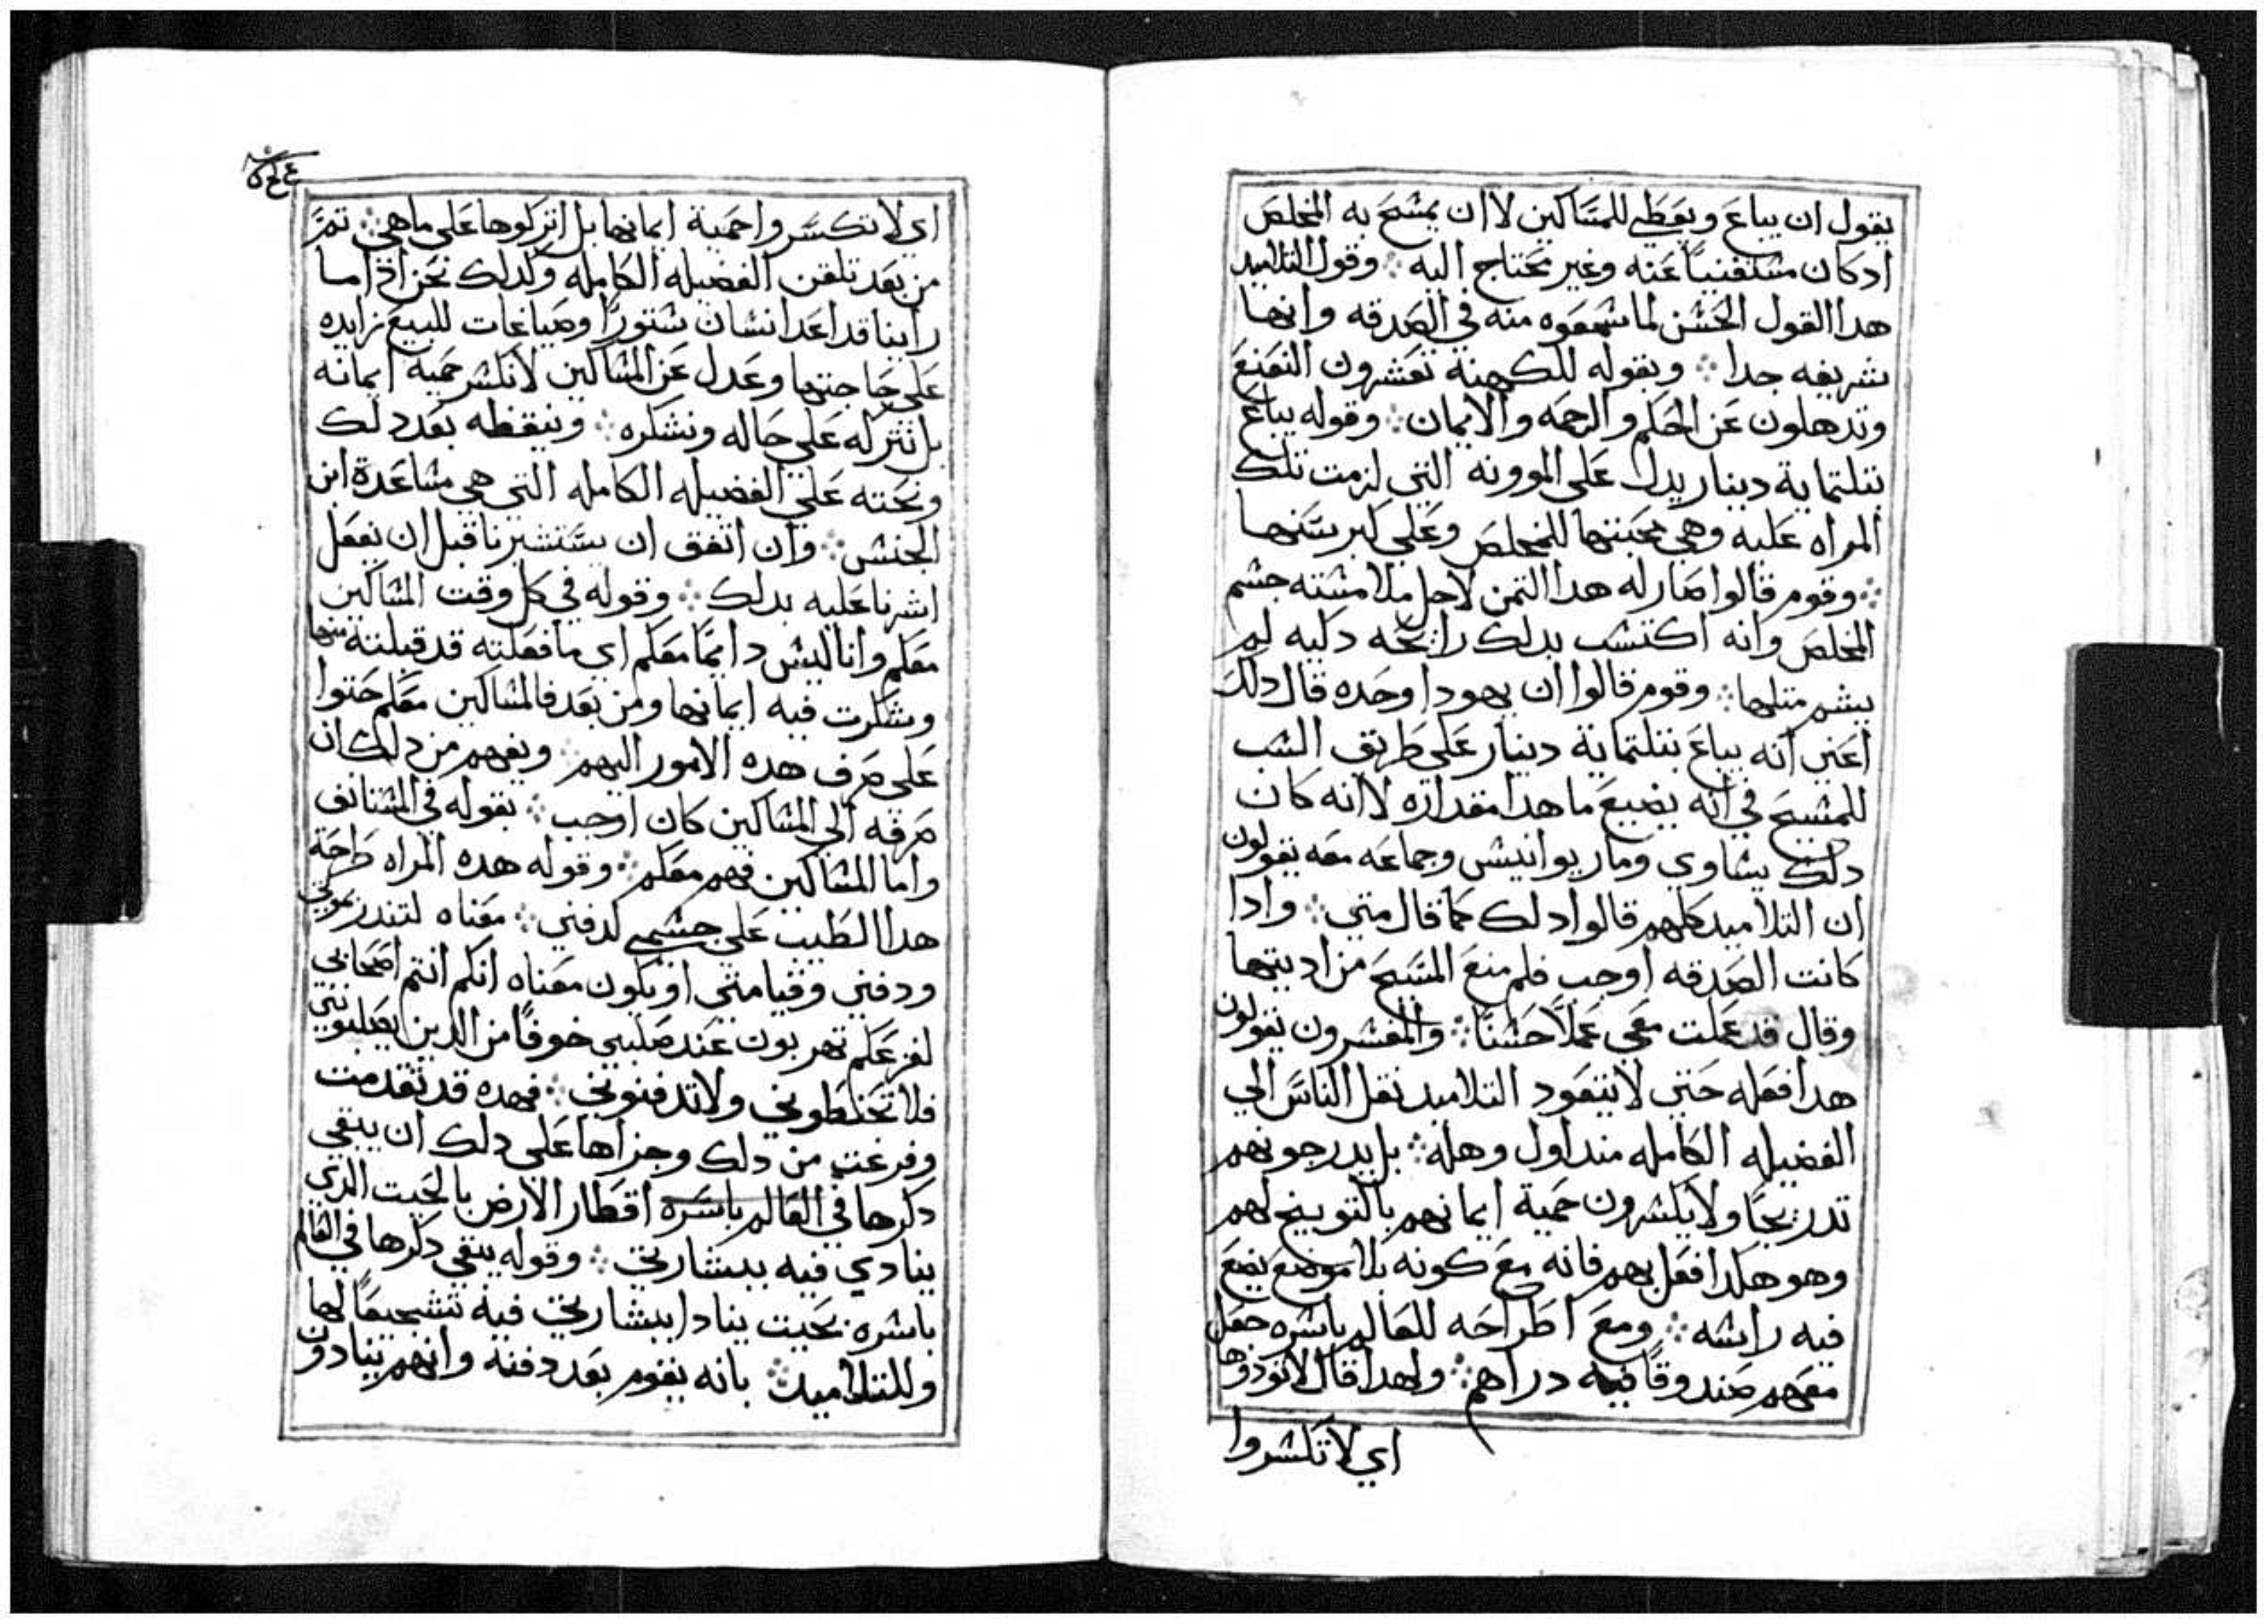 يقول ان يباع ويعطي للمسَاكين لا ان يمشح به المخلص
ادكان مشتغنياً عنه وغير محتاج اليه ⁘ وقول التلاميد
هدا القول الحشن لما شمعوه منه في الصدقه وانها
شريفه جدا ⁘ وبقوله للكهنة تعشرون النعنع
وتدهلون عن الحكم والرحمه والايمان ⁘ وقوله يباع
بتلتماية دينار يدل على الموونه التي لزمت تلك
المراه عليه وهي محبتها للمخلص وعلي كبر سَنها
⁘ وقوم قالوا صار له هدا التمن لاجل ملامشته جشم
المخلص وانه اكتشب بدلك رايحه دكيه لم
يشم متلها ⁘ وقوم قالوا ان يهودا وحده قال دلك
اعني انه يباع بتلتماية دينار علي طريق الشب
للمشيح في انه يضيع ما هدا مقداره لا انه كان
دلك يشاوي وماريوانيش وجماعه معه يقولون
ان التلاميد كلهم قالوا دلك كما قال متي ⁘ وادا
كانت الصدقه اوجب فلم منع المسَيح من اديتها
وقال قد عملت معي عملاً حشناً ⁘ والمفشرون يقولون
هدا فعله حتي لا يتعود التلاميد نقل الناسَ الي
الفضيله الكامله مند اول وهله ⁘ بل يدرجونهم
تدريجاً ولا يكشرون حمية ايمانهم بالتوبيخ لهم
وهو هكدا فعل بهم فانه مع كونه بلا موضع يضع
فيه راشه ⁘ ومع اطراحه للعالم باشره جعل
معهم صندوقاً فيه دراهم ⁘ ولهدا قال لا تودوها
اي لا تكشروا
اي لا تكسَروا حمية ايمانها بل اتركوها علي ما هي ⁘ تمَّ
من بعد تلقن الفضيله الكامله ولدلك نحن اد اما
راينا قد اعد انشان شتوراً وصياغات للبيع زايده
علي حاجتها وعدل عن المشاكين لا نكشر حمية ايمانه
بل نتركه علي حاله ونشكره ⁘ ونيقظه بعد دلك
ونحته علي الفضيله الكامله التي هي مشاعدة ابن
الجنش ⁘ وان اتفق ان يسَتشيرنا قبل ان يفعل
اشرنا عليه بدلك ⁘ وقوله في كل وقت المشاكين
معكم وانا ليش دايمًا معكم اي ما فعلته قد قبلته منها
وشكرت فيه ايمانها ومن بعد فالمشاكين معكم حتوا
علي صرف هده الامور اليهم ⁘ ويفهم من دلك ان
صرفه الي المشاكين كان اوجب ⁘ بقوله في المشتانف
واما المشاكين فهم معكم ⁘ وقوله هده المراه طراحة
هدا الطيب علي جشمي لدفني ⁘ معناه لتندر بموتي
ودفني وقيامتي او يكون معناه انكم انتم اصحابي
لفزعكم تهربون عند صلبي خوفاً من الدين يصلبونني
فلا تحنطوني ولا تدفنوني ⁘ فهده قد تقدمت
وفرغت من دلك وجزاها علي دلك ان يبقي
دكرها في العالم باسَره اقطار الارض بالحيت الدي
ينادي فيه ببشارتي ⁘ وقوله يبقي دكرها في العالم
باشره بحيت ينادا ببشارتي فيه تشجيعاً لها
وللتلاميد ⁘ بانه يقوم بعد دفنه وانهم ينادون